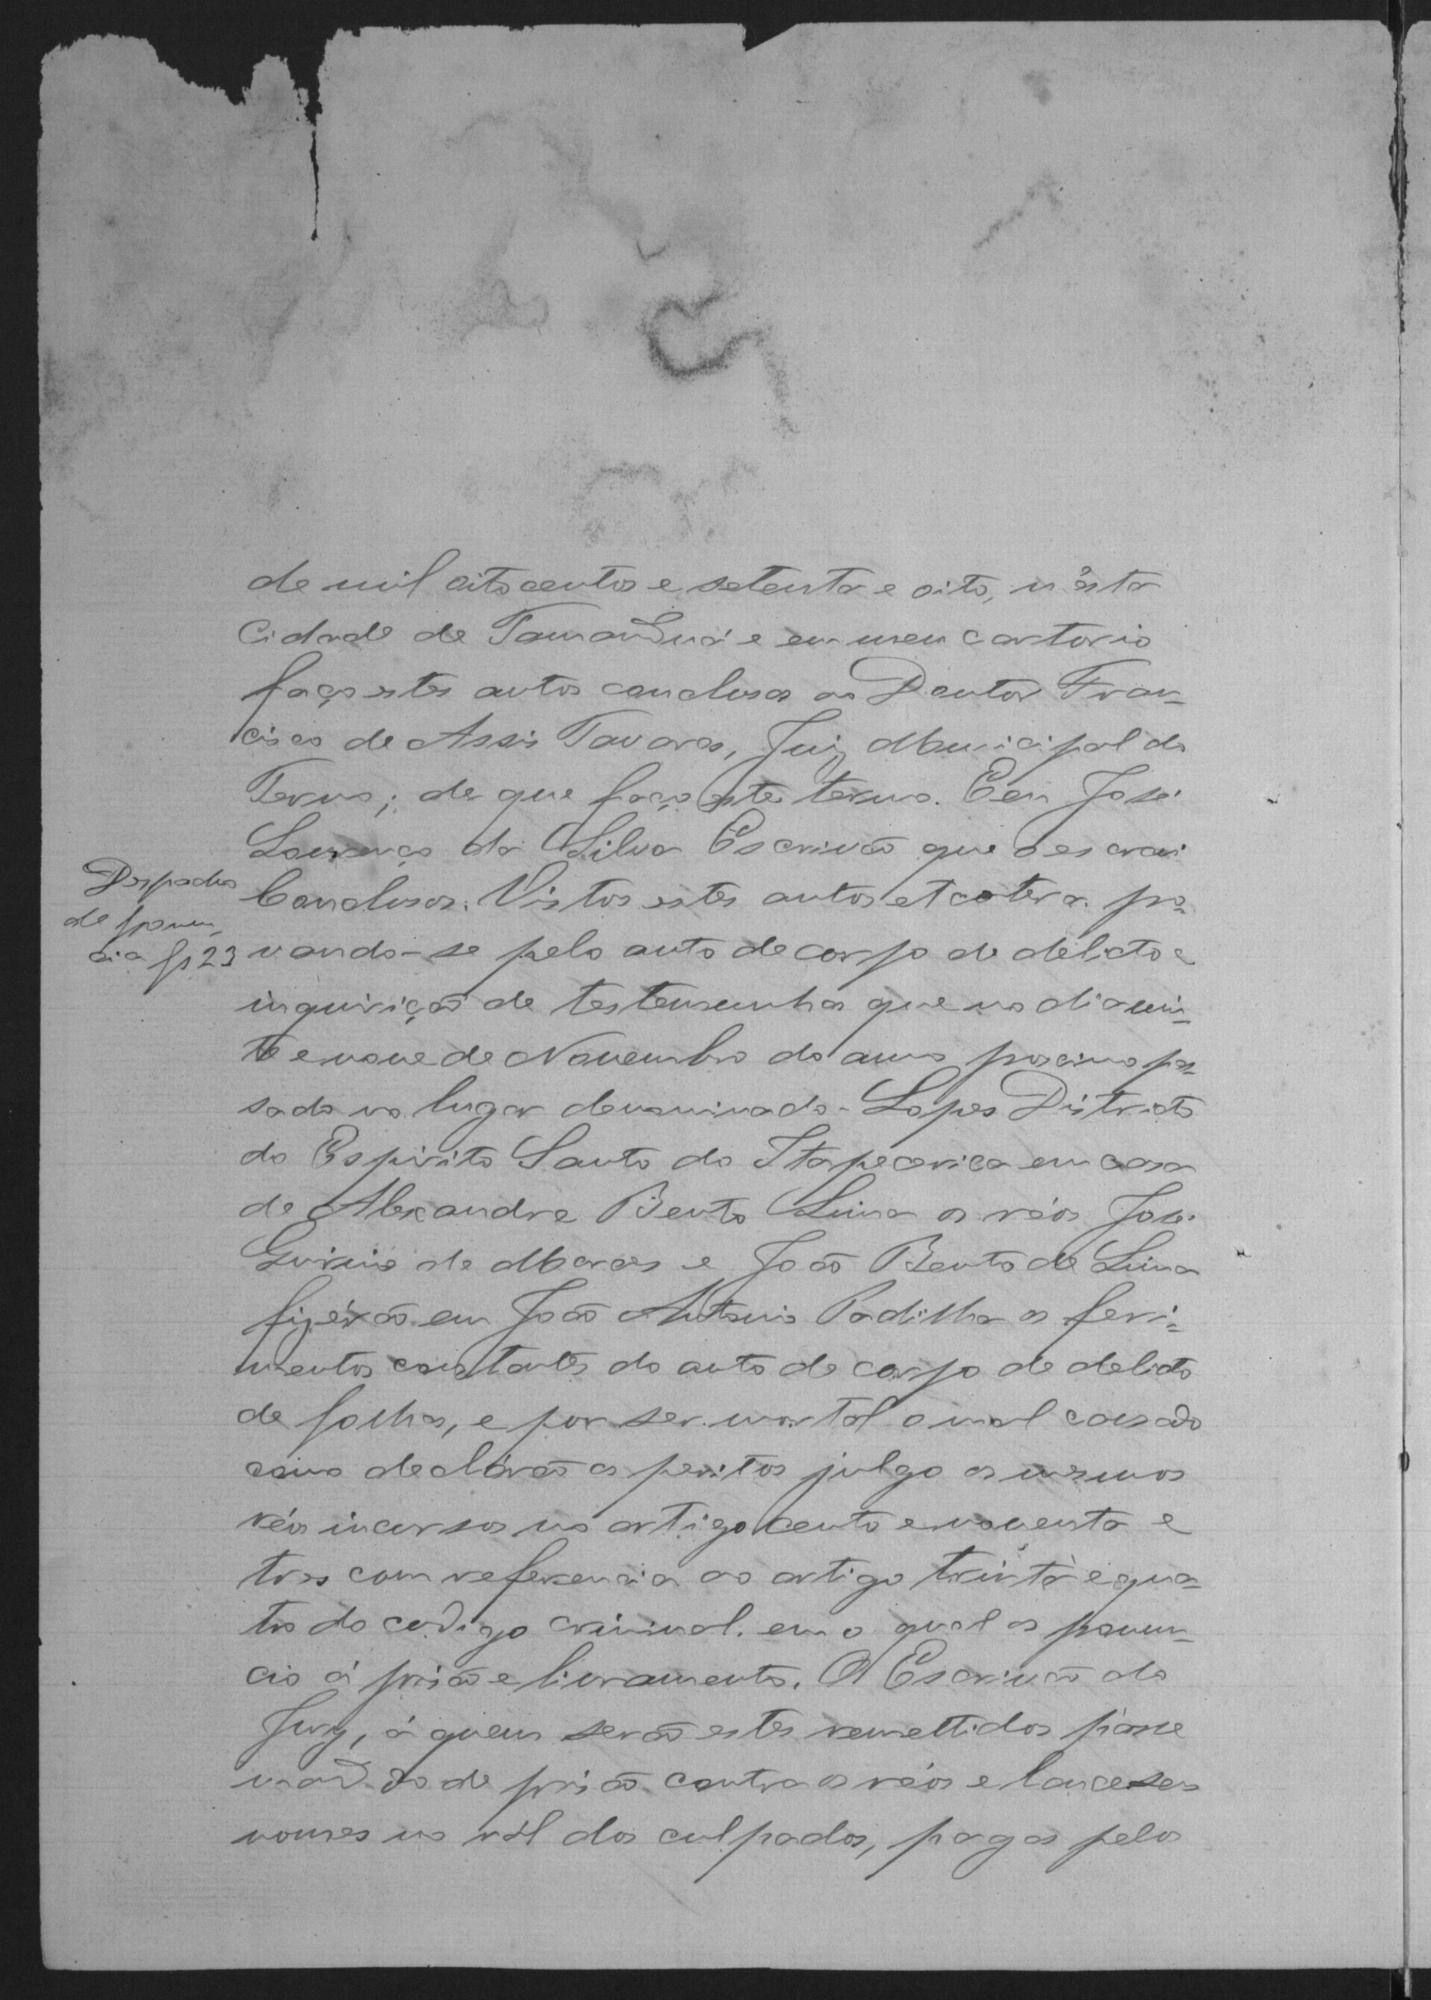 de mil oitocentos e setenta e oito, n'esta
Cidade de Tamanduá e em meu cartorio
faço estes autos conclusos ao Doutor Fran-
cisco de Assis Tavares, Juiz Municipal do
Termo; de que faço este termo. Eu José
Lourenço da Silva Escrivão que o escrevi
Despacho
de pronun-
cia fs 23
Conclusos. Vistos estes autos etcetera. pro-
vando-se pelo auto de corpo de delicto e
inquirição de testemunhas que no dia vin-
te e nove de Novembro do anno proximo pas-
sado no lugar denominado - Lopes Districto
do Espirito Santo do Itapecerica em casa
de Alexandre Bento Lima os réos José
Guirino de Moraes e João Bento de Lima
fizérão em João Antonio Padilha os feri-
mentos constantes do auto de corpo de delicto
de folhas, e por ser mortal o mal causado
como declárão os peritos julgo os mesmos
réos incursos no artigo cento e noventa e
tres com referencia ao artigo trinta e qua-
tro do codigo criminal. em o qual os pronun-
cio á prisão e livramento. O Escrivão do
Jury, á quem serão estes remettidos passe
mandado de prisão contra os réos e lance seus
nomes no ról dos culpados, pagas pelos